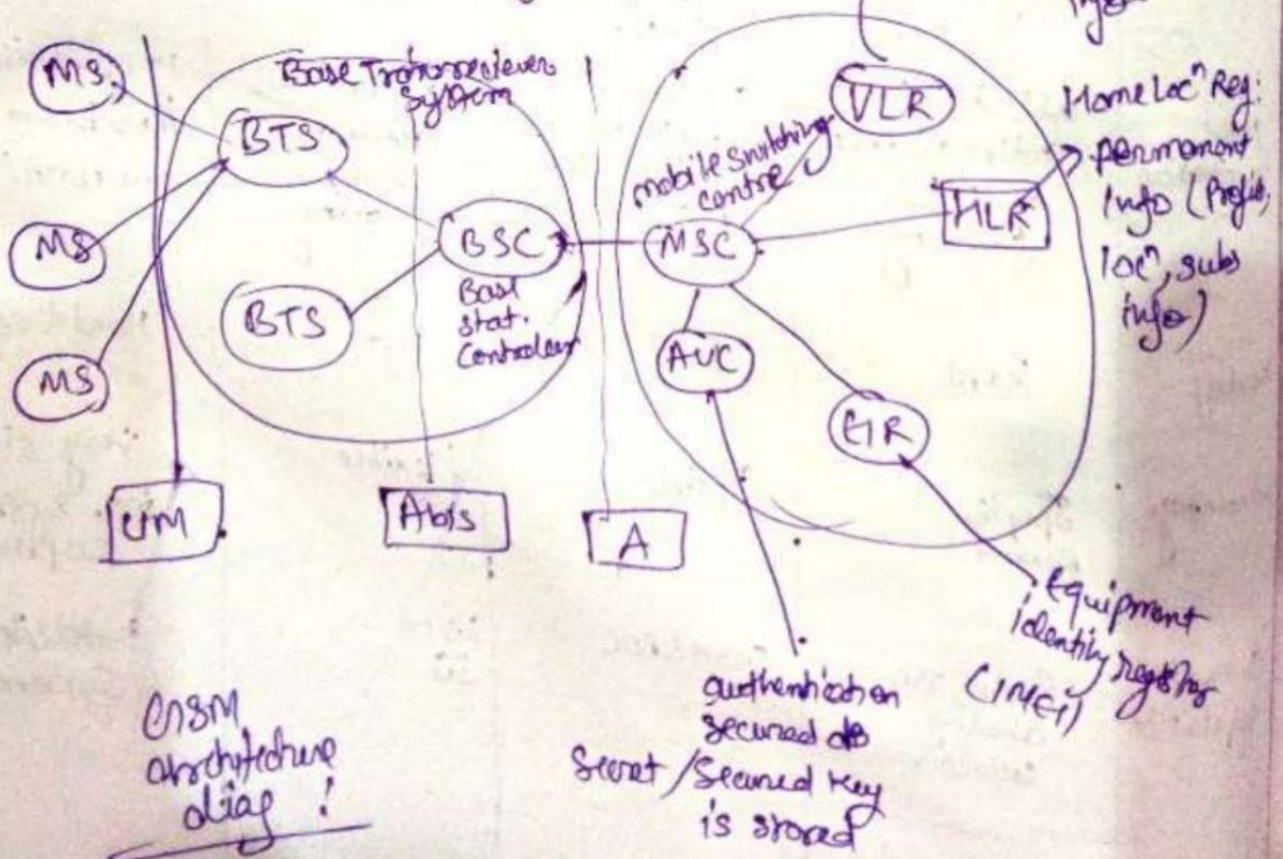 MS
MS
MS
Base Transreciever
System
BTS
BTS
BSC
Base
stat.
Controller
mobile switching
centre
MSC
VLR
HLR
AUC
EIR
Info
Home Locⁿ Reg:
permanent
Info (Profile,
locⁿ, subs
info)
UM
Abis
A
Equipment
identity register
(IMEI)
authentication
secured db
Secret/Secured Key
is stored
GSM
architecture
diag !